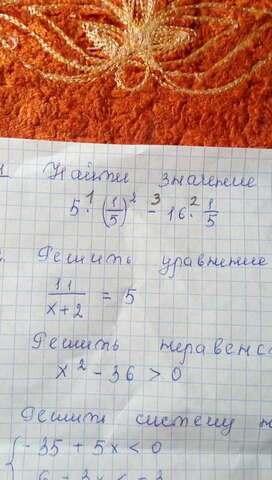 1 Найти значение
5 · (1/5)² - 16 · 1/5
1 3 2
Решить уравнение
11/(x+2) = 5
Решить
x² - 36 > 0
Решить систему
{ -35 + 5x < 0
6 - 3x < -3